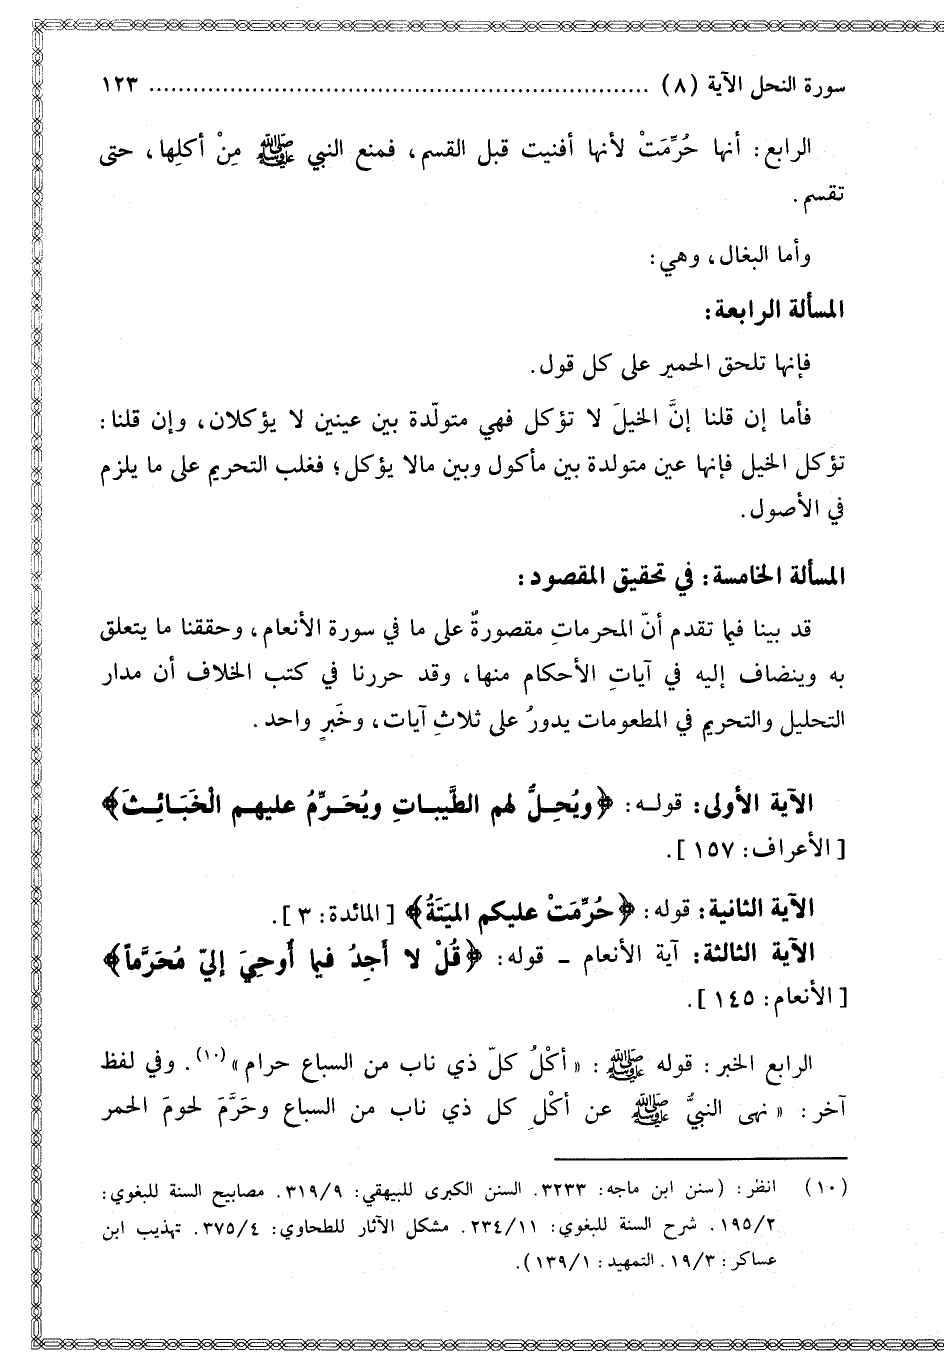 سورة النحل الآية (٨) ................................................................ ١٢٣
الرابع: أنها حُرِّمَتْ لأنها أفنيت قبل القسم، فمنع النبي ﷺ مِنْ أكلِها، حتى
تقسم.
وأما البغال، وهي:
المسألة الرابعة:
فإنها تلحق الحمير على كل قول.
فأما إن قلنا إنَّ الخيلَ لا تؤكل فهي متولّدة بين عينين لا يؤكلان، وإن قلنا:
تؤكل الخيل فإنها عين متولدة بين مأكول وبين مالا يؤكل؛ فغلب التحريم على ما يلزم
في الأصول.
المسألة الخامسة: في تحقيق المقصود:
قد بينا فيما تقدم أنّ المحرماتِ مقصورةٌ على ما في سورة الأنعام، وحققنا ما يتعلق
به وينضاف إليه في آياتِ الأحكام منها، وقد حررنا في كتب الخلاف أن مدار
التحليل والتحريم في المطعومات يدورُ على ثلاثِ آيات، وخَبرٍ واحد.
الآية الأولى: قوله: ﴿ويُحِلُّ لهم الطَّيباتِ ويُحَرِّمُ عليهم الْخَبَائِثَ﴾
[الأعراف: ١٥٧].
الآية الثانية: قوله: ﴿حُرِّمَتْ عليكم الميَتَةُ﴾ [المائدة: ٣].
الآية الثالثة: آية الأنعام - قوله: ﴿قُلْ لا أَجِدُ فيما أُوحِيَ إليّ مُحَرَّماً﴾
[الأنعام: ١٤٥].
الرابع الخبر: قوله ﷺ: «أكْلُ كلّ ذي ناب من السباع حرام»(١٠). وفي لفظ
آخر: «نهى النبيُّ ﷺ عن أكْلِ كل ذي ناب من السباع وحَرَّمَ لحومَ الحمر
(١٠) انظر: (سنن ابن ماجه: ٣٢٣٣. السنن الكبرى للبيهقي: ٣١٩/٩. مصابيح السنة للبغوي:
١٩٥/٢. شرح السنة للبغوي: ٢٣٤/١١. مشكل الآثار للطحاوي: ٣٧٥/٤. تهذيب ابن
عساكر: ١٩/٣. التمهيد: ١٣٩/١).